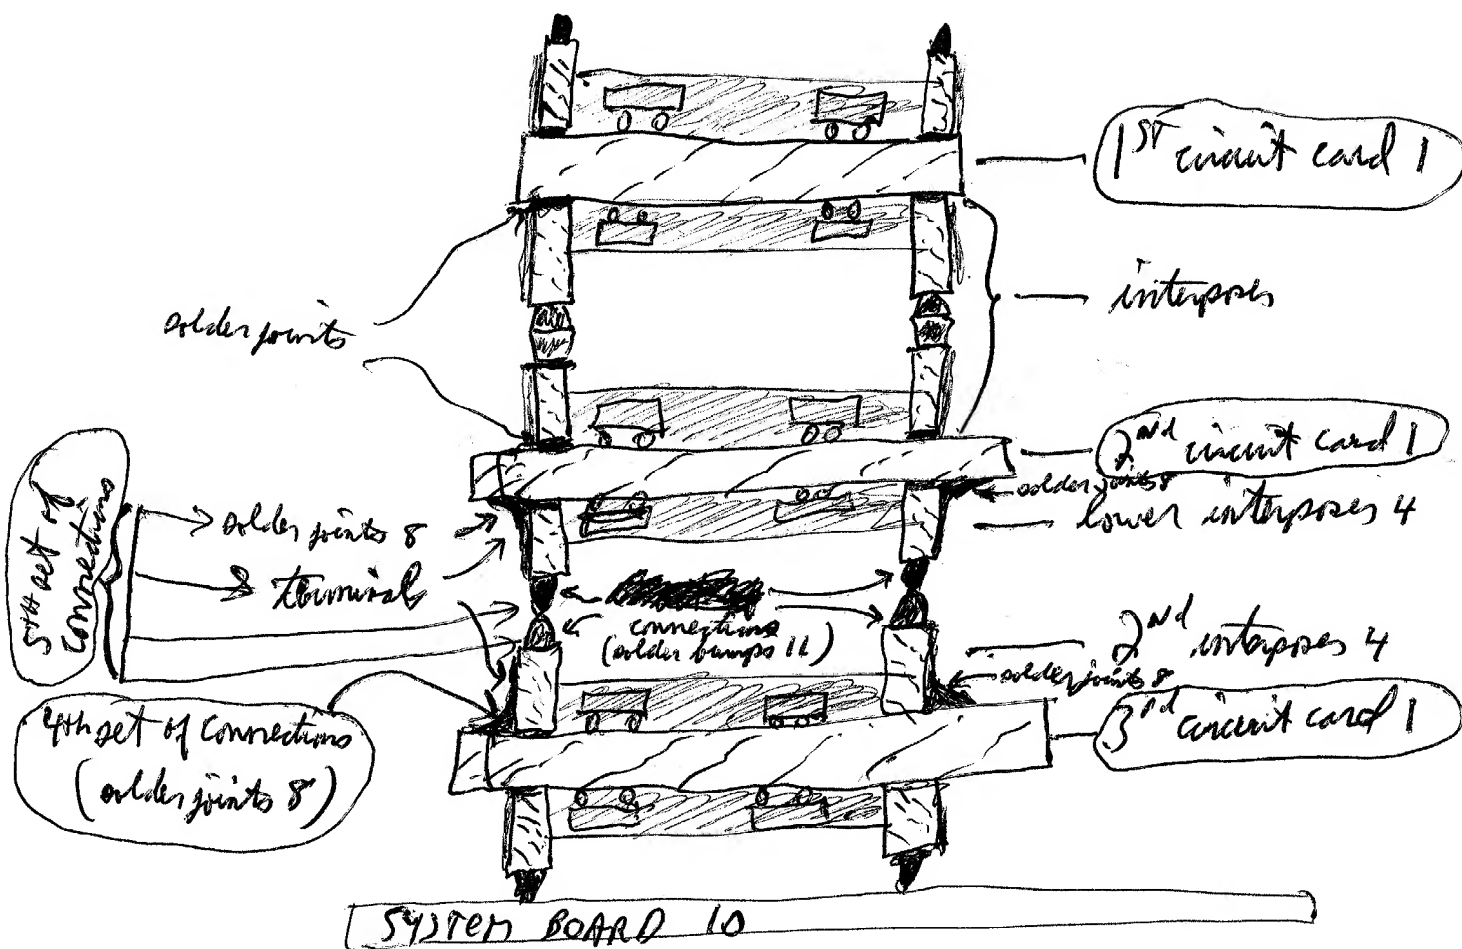 1ST circuit card 1
interposes
solder joints
2nd circuit card 1
solder joints 8
lower interposes 4
5TH set of
connections
solder joints 8
terminal
connections
(solder bumps 11)
2nd interposes 4
solder joints 8
3rd circuit card 1
4th set of connections
(solder joints 8)
SYSTEM BOARD 10